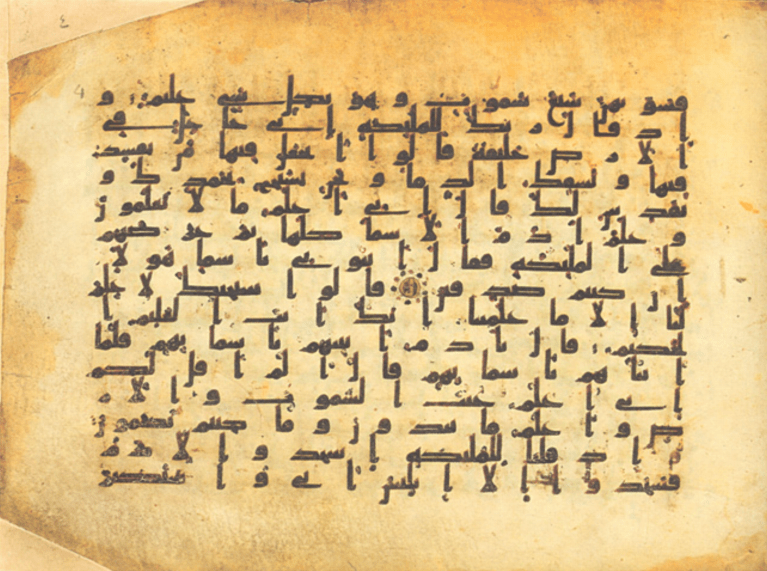 فسويهن سبع سموت و هو بكل شيء عليم و
اذ قال ربك للملئكة اني جاعل في
الارض خليفة قالوا اتجعل فيها من يفسد
فيها و يسفك الدما و نحن نسبح بحمدك و
نقدس لك قال اني اعلم ما لا تعلمون
و علم ادم الاسما كلها ثم عرضهم
على الملئكة فقال انبوني باسما هولا
ان كنتم صدقين قالوا سبحنك لا علم
لنا الا ما علمتنا انك انت العليم ا
لحكيم قال يادم انبهم باسمائهم فلما
انباهم باسمائهم قال الم اقل لكم
اني اعلم غيب السموت و الا
رض و اعلم ما تبدون و ما كنتم تكتمون
و اذ قلنا للملئكة اسجدوا لادم
فسجدوا الا ابليس ابى و استكبر